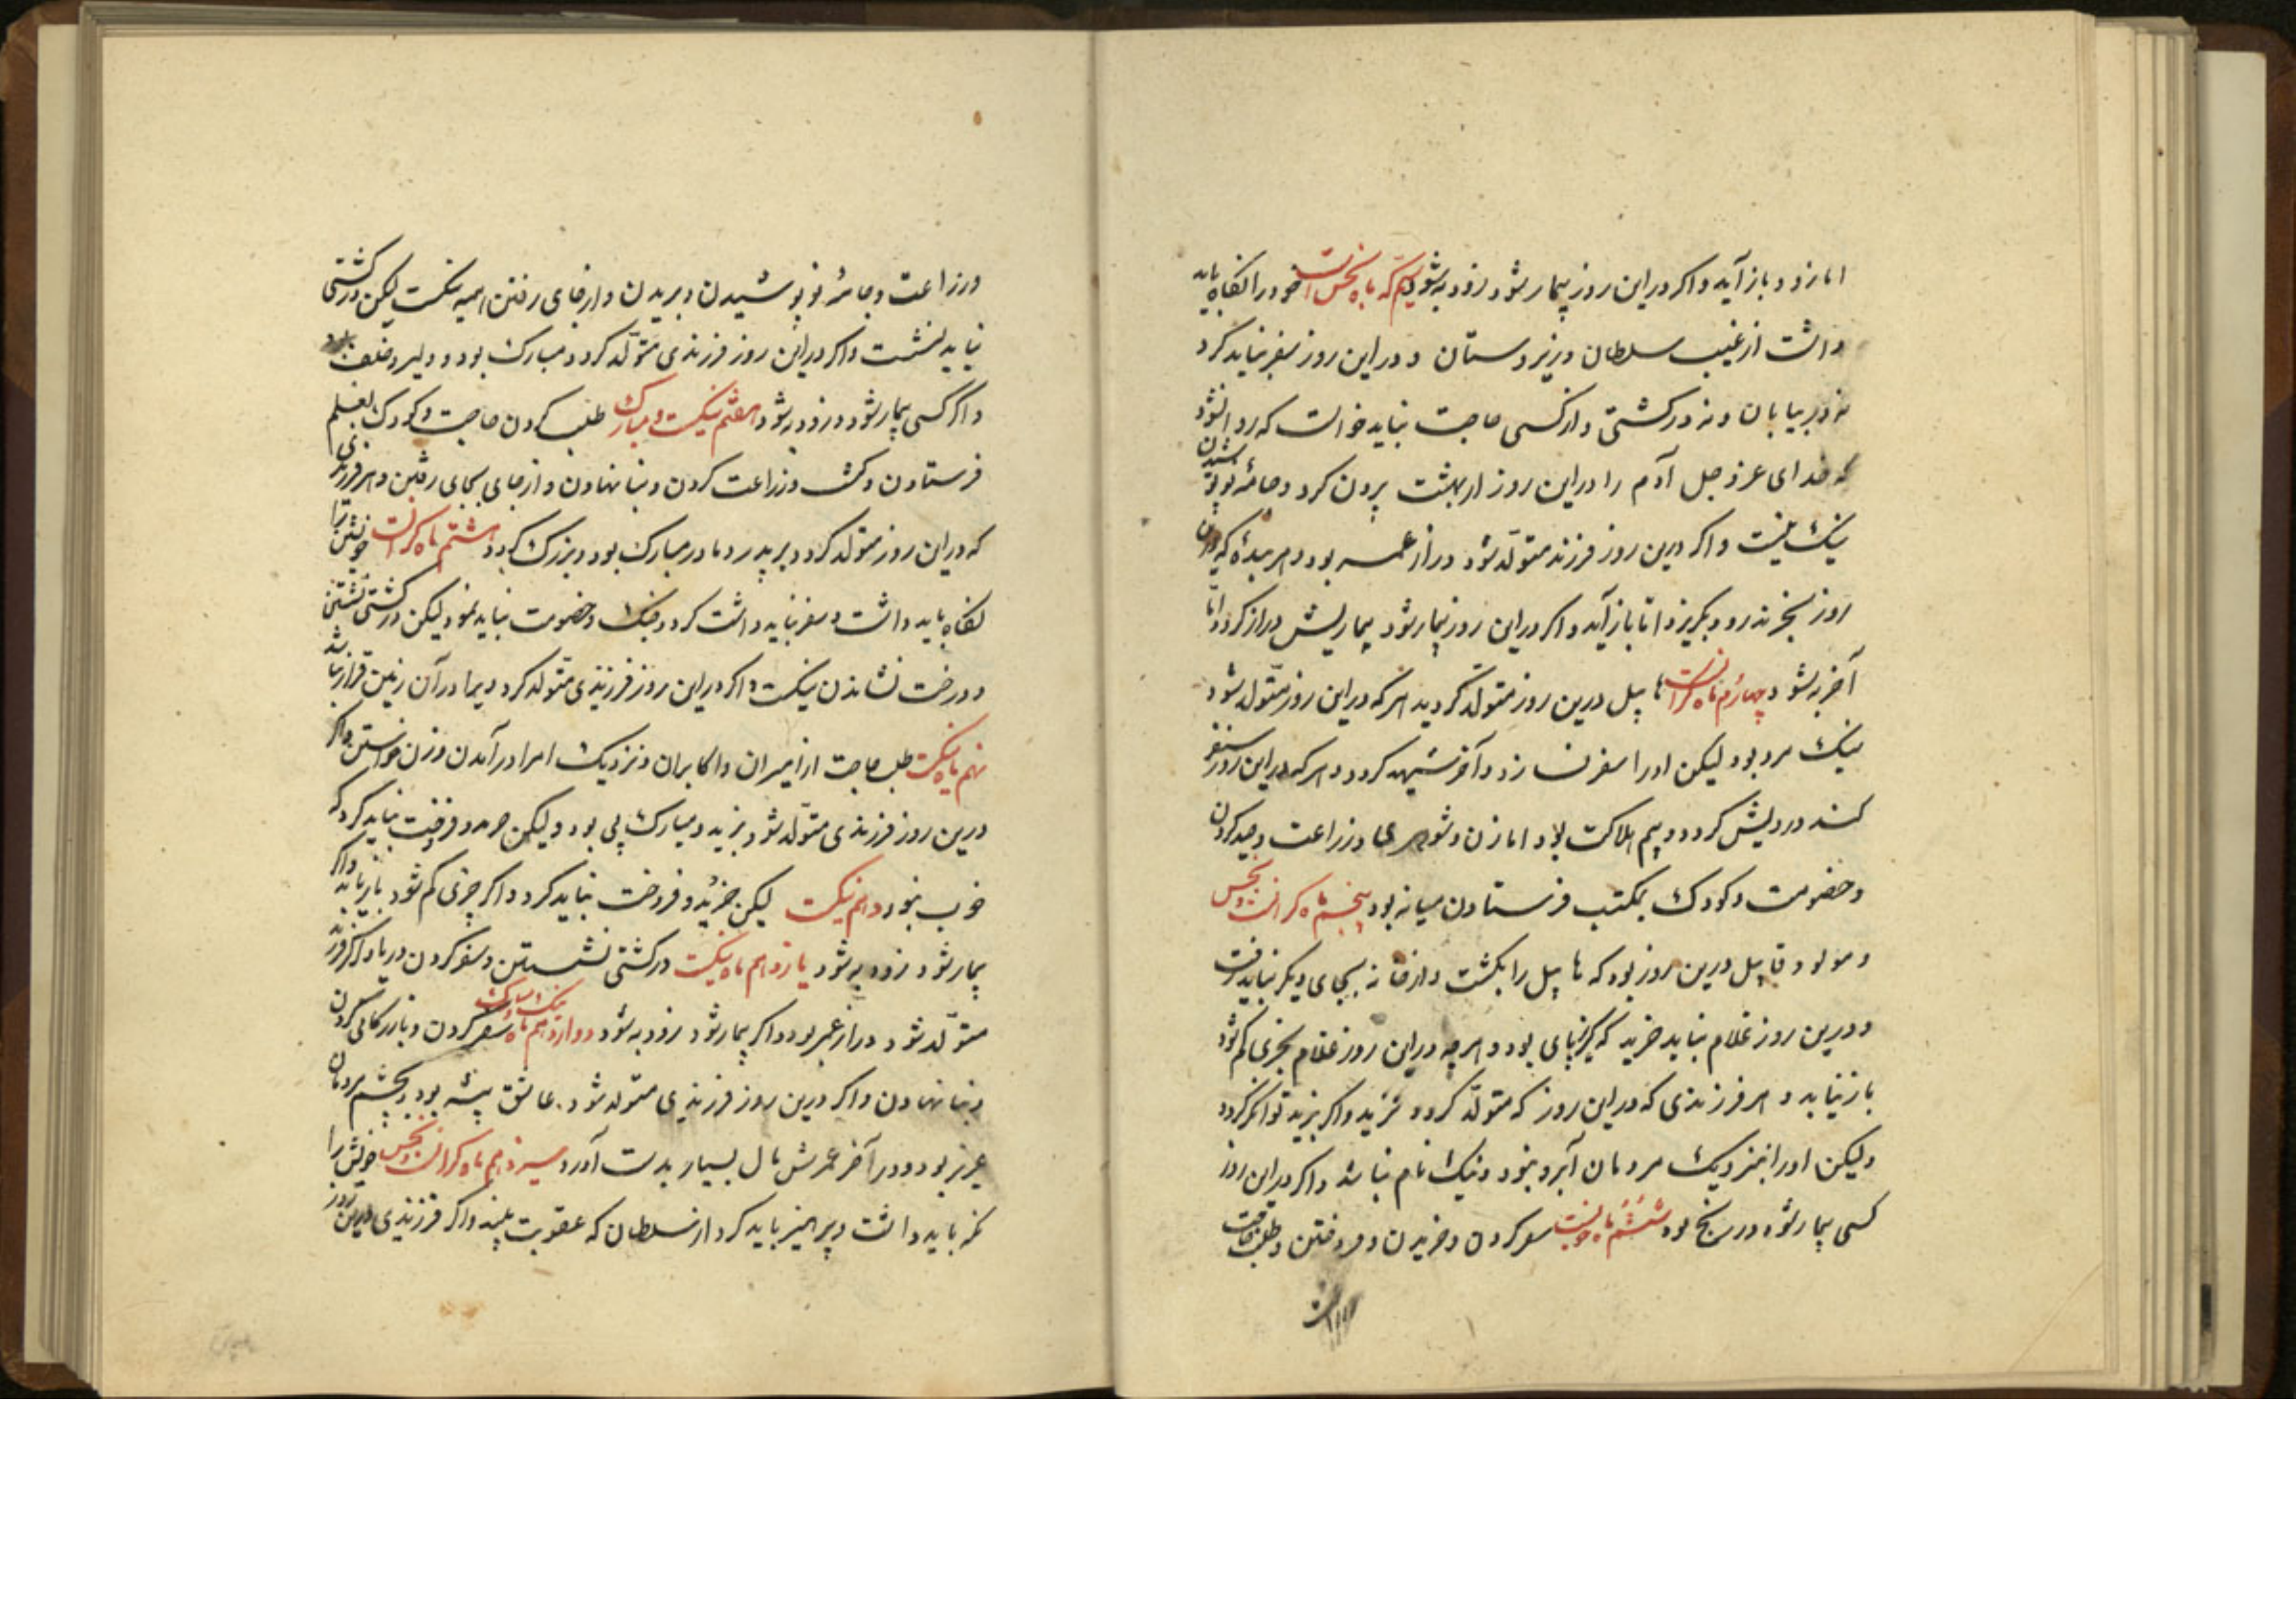 اما زود باز آید و اگر در این روز بیمار شود زود به شود سیّم که ماه نحس است خود را نگاه باید
داشت از غیب سلطان و زیر دستان و در این روز سفر نباید کرد
نه در بیابان و نه در کشتی و از کسی حاجت نباید خواست که روا نشود
که خدای عز و جل آدم را در این روز از بهشت برون کرد و جامهٔ نو پوشیدن
نیک نیست و اگر درین روز فرزند متولّد شود دراز عمر بود و هر بنده که درین
روز بخرند رود بگریزد امّا باز آید و اگر در این روز بیمار شود بیماریش دراز گردد امّا
آخر به شود چهارم ماه هابیل درین روز متولّد گردید هر که در این روز متولد شود
نیک مرد بود لیکن او را سفر نسازد و آخر شهید گردد و هر که در این روز سفر
کند درویش گردد و بیم هلاکت بود اما زن و شوهر و زراعت و صید کردن
و خصومت و کودک بمکتب فرستادن میانه بود پنجم ماه گرانست و نحس
و مولود قابیل درین روز بود که هابیل را بکشت و از خانه بجای دیگر نباید رفت
و درین روز غلام نباید خرید که گریزپای بود و هر چه در این روز غلام بخری گم شود
باز نیاید و هر فرزندی که در این روز که متولّد گردد نزید و اگر بزید توانگر گردد
ولیکن او را بنزدیک مردمان آبرو نبود و نیک نام نباشد و اگر در این روز
کسی بیمار شود در رنج بود ششم ماه خوبست سفر کردن و خریدن و فروختن و طلب حاجت
و زراعت و جامهٔ نو پوشیدن و بریدن و از جای رفتن همه نیکست لیکن در کشتی
نباید نشست و اگر در این روز فرزندی متولّد گردد مبارک بود و دلیر و خلف
و اگر کسی بیمار شود زود به شود هفتم نیکست و مبارک طلب کردن حاجت و کودک بمعلم
فرستادن و کشت و زراعت کردن و بنا نهادن و از جای بجای رفتن و هر فرزندی
که در این روز متولّد گردد بر پدر و مادر مبارک بود و بزرگ گردد هشتم ماه گرانست خویشتن را
نگاه باید داشت و سفر نباید داشت کرد و جنگ و خصومت نباید نمود لیکن در کشتی نشستن
و درخت نشاندن نیکست و اگر در این روز فرزندی متولّد گردد ویرا در آن زمین قرار نباشد
نهم ماه نیکست طلب حاجت از امیران و اکابران و نزدیک امرا در آمدن و زن خواستن و اگر
درین روز فرزندی متولّد شود بزید و مبارک پی بود ولیکن خرید و فروخت نباید کرد که
خوب نبود دهم نیکست لیکن خرید و فروخت نباید کرد و اگر چیزی گم شود باز یابد و اگر
بیمار شود زود به شود یازدهم ماه نیکست در کشتی نشستن و سفر کردن در یا و اگر فرزند
متولّد شود دراز عمر بود و اگر بیمار شود زود به شود دوازدهم ماه نیک و مبارک سفر کردن و بازرگانی کردن
و بنا نهادن و اگر درین روز فرزندی متولد شود عاشق پیشه بود و بچشم مردمان
عزیز بود و در آخر عمرش مال بسیار بدست آورد سیزدهم ماه گرانست و نحس خویش را
نگه باید داشت و پرهیز باید کرد از سلطان که عقوبت بیند و اگر فرزندی درین روز